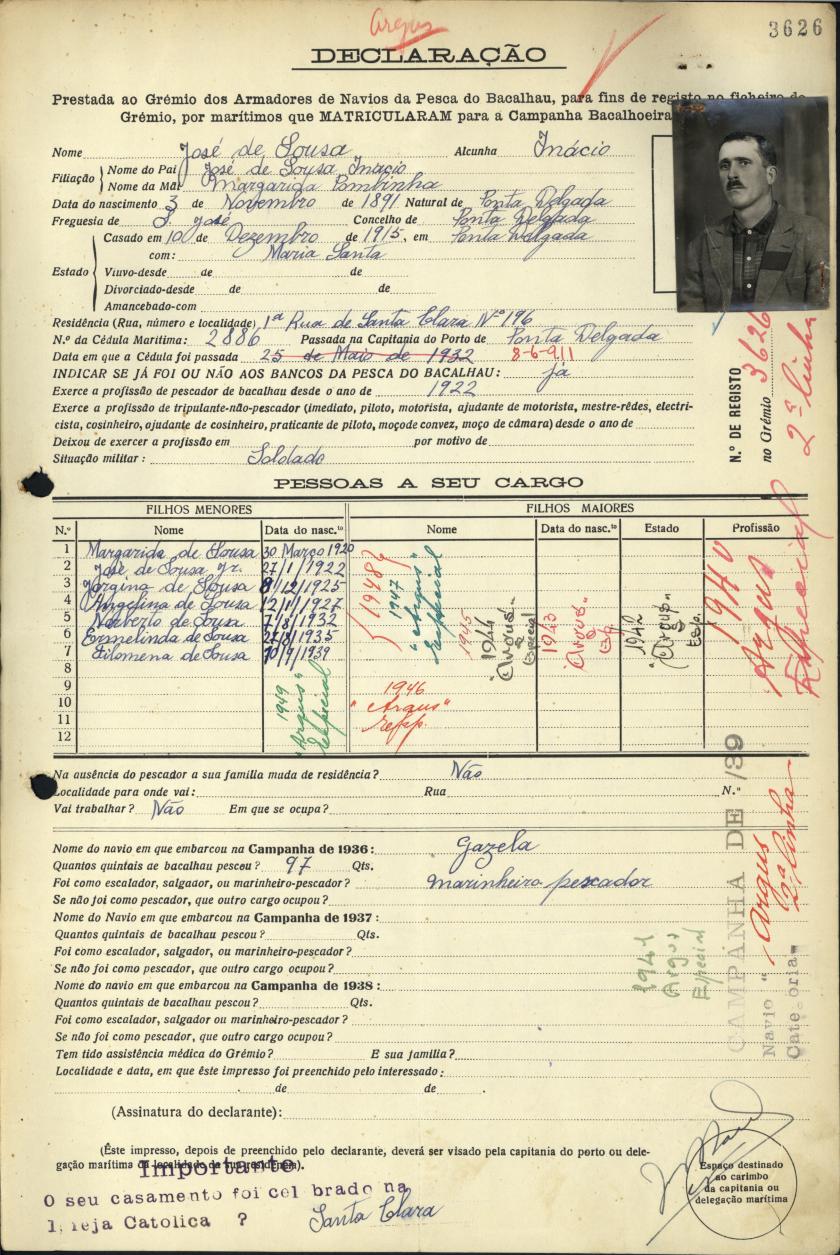 Argus
3626
DECLARAÇÃO
Prestada ao Grémio dos Armadores de Navios da Pesca do Bacalhau, para fins de registo no ficheiro do
Grémio, por marítimos que MATRICULARAM para a Campanha Bacalhoeira
Nome José de Sousa Alcunha Inácio
Filiação Nome do Pai José de Sousa Inácio
Nome da Mãe Margarida Pombinha
Data do nascimento 3 de Novembro de 1891 Natural de Ponta Delgada
Freguesia de S. José Concelho de Ponta Delgada
Casado em 10 de Dezembro de 1915, em Ponta Delgada
com: Maria Santa
Estado Viuvo-desde de de
Divorciado-desde de de
Amancebado-com
Residência (Rua, número e localidade) 1ª Rua de Santa Clara Nº 196
N.º da Cédula Marítima: 2886 Passada na Capitania do Porto de Ponta Delgada
Data em que a Cédula foi passada 25 de Maio de 1932 8-6-911
INDICAR SE JÁ FOI OU NÃO AOS BANCOS DA PESCA DO BACALHAU: Já
Exerce a profissão de pescador de bacalhau desde o ano de 1922
Exerce a profissão de tripulante-não-pescador (imediato, piloto, motorista, ajudante de motorista, mestre-rêdes, electri-
cista, cosinheiro, ajudante de cosinheiro, praticante de piloto, moço de convez, moço de câmara) desde o ano de
Deixou de exercer a profissão em por motivo de
Situação militar: Soldado
N.º DE REGISTO
no Grémio 3626
2ª linha
PESSOAS A SEU CARGO
FILHOS MENORES FILHOS MAIORES
N.º Nome Data do nasc.to Nome Data do nasc.to Estado Profissão
1 Margarida de Sousa 30 Março 1920
2 José de Sousa Jr. 27/1/1922
3 Jorgina de Sousa 8/12/1925
4 Angelina de Sousa 12/1/1927
5 Norberto de Sousa 7/8/1932
6 Ermelinda de Sousa 27/8/1935
7 Filomena de Sousa 10/9/1939
8
9
10
11
12
1949 "Argus" Especial
1948
1947 "Argus" Especial
1946 "Argus" Esp.
1945
1944 "Argus" Especial
1943 "Argus" Esp.
1942 "Argus" Esp.
1940 Argus Especial
Na ausência do pescador a sua família muda de residência? Não
Localidade para onde vai: Rua N.º
Vai trabalhar? Não Em que se ocupa?
Nome do navio em que embarcou na Campanha de 1936: Gazela
Quantos quintais de bacalhau pescou? 97 Qts.
Foi como escalador, salgador, ou marinheiro-pescador? marinheiro pescador
Se não foi como pescador, que outro cargo ocupou?
Nome do Navio em que embarcou na Campanha de 1937:
Quantos quintais de bacalhau pescou? Qts.
Foi como escalador, salgador, ou marinheiro-pescador?
Se não foi como pescador, que outro cargo ocupou?
Nome do navio em que embarcou na Campanha de 1938:
Quantos quintais de bacalhau pescou? Qts.
Foi como escalador, salgador ou marinheiro-pescador?
Se não foi como pescador, que outro cargo ocupou?
Tem tido assistência médica do Grémio? E sua família?
Localidade e data, em que êste impresso foi preenchido pelo interessado:
de de .
1941 Argus Especial
CAMPANHA DE /39
Navio "Argus
Cate oria 2ª linha
(Assinatura do declarante):
(Êste impresso, depois de preenchido pelo declarante, deverá ser visado pela capitania do porto ou dele-
gação marítima da localidade da sua residência).
Importante
O seu casamento foi cel brado na
I reja Catolica ? Santa Clara
Espaço destinado
ao carimbo
da capitania ou
delegação marítima